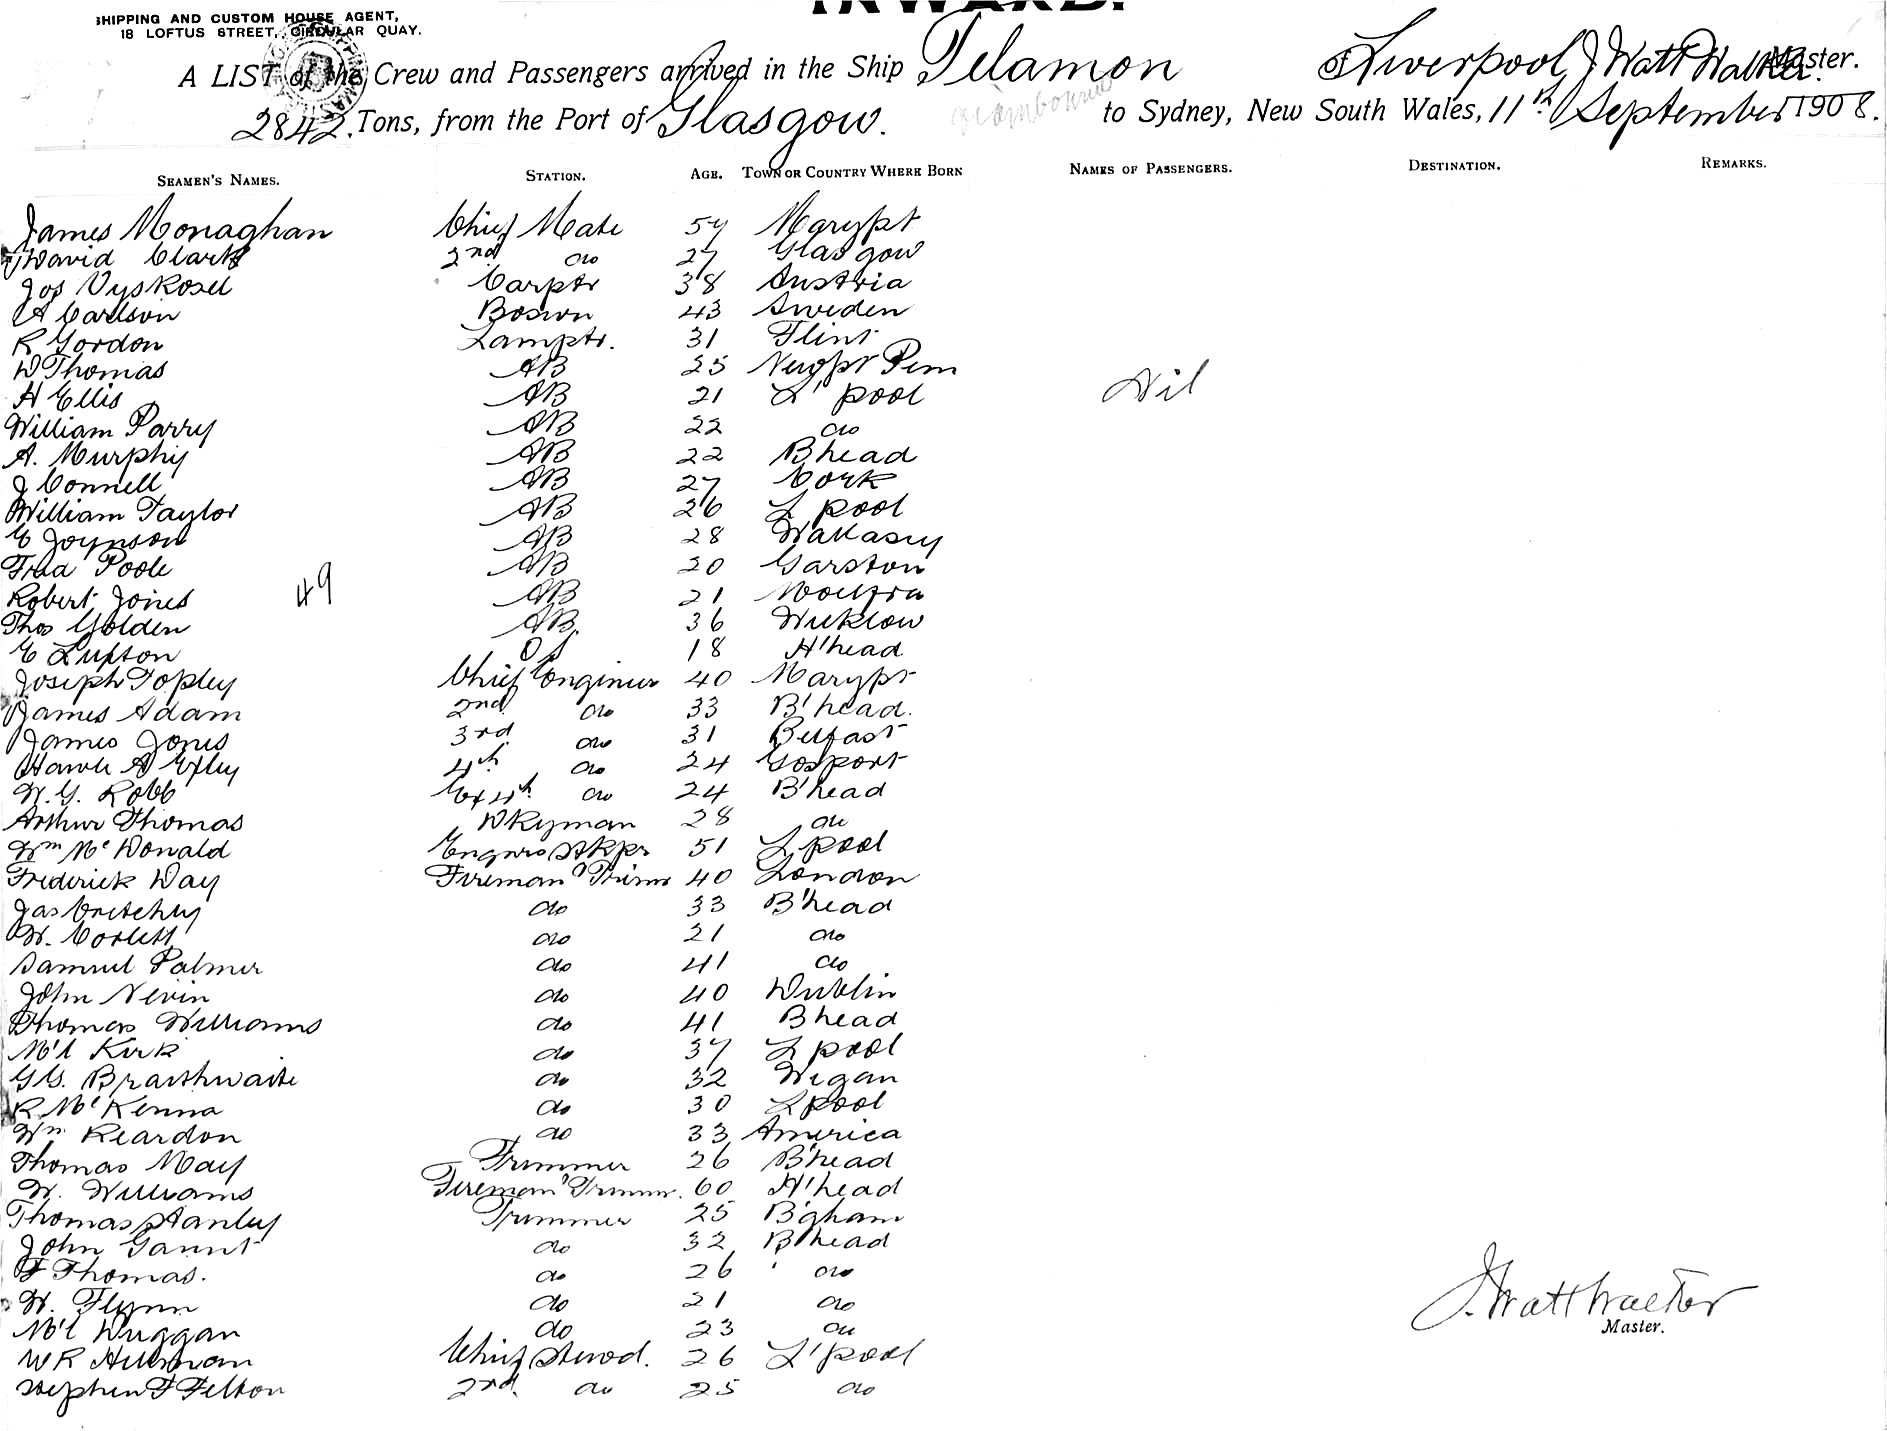 INWARD.
SHIPPING AND CUSTOM HOUSE AGENT,
18 LOFTUS STREET, CIRCULAR QUAY.
A LIST of the Crew and Passengers arrived in the Ship Telamon of Liverpool, J Watt Walker Master.
2842 Tons, from the Port of Glasgow. to Sydney, New South Wales, 11th September 1908.
SEAMEN'S NAMES. STATION. AGE. TOWN OR COUNTRY WHERE BORN NAMES OF PASSENGERS. DESTINATION. REMARKS.
James Monaghan Chief Mate 57 Marypt
David Clark 2nd do 27 Glasgow
Jos Vyskosel Carptr 38 Austria
A Carlson Boswn 43 Sweden
R Gordon Lamptr. 31 Flint
W Thomas AB 25 Newpt Pem
H Ellis AB 21 L'pool Nil
William Parry AB 22 do
A. Murphy AB 22 Bhead
J Connell AB 27 Cork
William Taylor AB 26 L pool
E Joynson AB 28 Wallasey
Fred Poole AB 20 Garston
Robert Jones AB 21 Moelfra
49
Thos Golden AB. 36 Wicklow
E Lupton OS 18 H'head
Joseph Topley Chief Engineer 40 Marypt
James Adam 2nd do 33 B'head.
James Jones 3rd do 31 Belfast
A Exley 4th do 24 Gosport
W. G. Robb Ex 4th do 24 B'head
Arthur Thomas Dkyman 28 do
Wm McDonald Engnrs Stkpr 51 L pool
Frederick Day Fireman & Trimr 40 London
Jas Critchley do 33 B'head
W. Corlett do 21 do
Samuel Palmer do 41 do
John Nevin do 40 Dublin
Thomas Williams do 41 Bhead
M'l Kirk do 37 L pool
G G. Braithwaite do 32 Wigan
R McKenna do 30 L pool
Wm Reardon do 33 America
Thomas May Trimmer 26 B'head
W. Williams Fireman & Trimmr. 60 H'head
Thomas Stanley Trimmer 25 B'gham
John Gaunt do 32 B'head
F Thomas. do 26 do
W. Flynn do 21 do
M'l Duggan do 23 do
J. Watt Walker
Master.
W R Hillman Chief Stewd. 26 L'pool
Stephen F Felton 2nd do 25 do